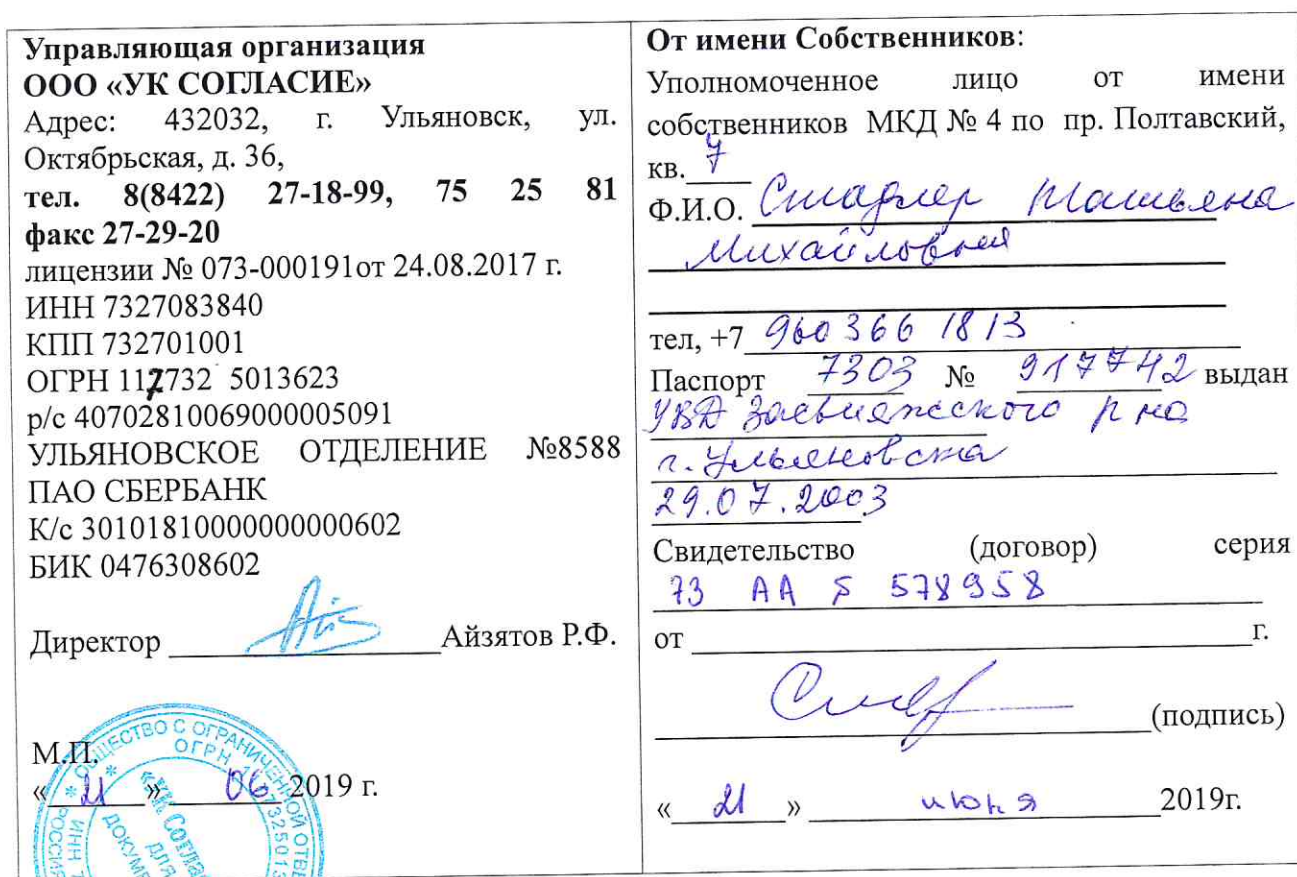 Управляющая организация
ООО «УК СОГЛАСИЕ»
Адрес: 432032, г. Ульяновск, ул.
Октябрьская, д. 36,
тел. 8(8422) 27-18-99, 75 25 81
факс 27-29-20
лицензии № 073-000191от 24.08.2017 г.
ИНН 7327083840
КПП 732701001
ОГРН 117732 5013623
р/с 40702810069000005091
УЛЬЯНОВСКОЕ ОТДЕЛЕНИЕ №8588
ПАО СБЕРБАНК
К/с 30101810000000000602
БИК 0476308602
Директор Айзятов Р.Ф.
М.П.
« 21 » 06 2019 г.
ОБЩЕСТВО С ОГРАНИЧЕННОЙ
ОГРН
«УК Согла
ДЛЯ
ДОКУМЕ
ИНН 7
РОССИЯ
От имени Собственников:
Уполномоченное лицо от имени
собственников МКД № 4 по пр. Полтавский,
кв. 7
Ф.И.О. Стадлер Татьяна
Михайловна
тел, +7 960 366 18 13
Паспорт 7303 № 917742 выдан
УВД Засвияжского р на
г. Ульяновска
29.07.2003
Свидетельство (договор) серия
73 АА 578958
от г.
(подпись)
« 21 » июня 2019г.